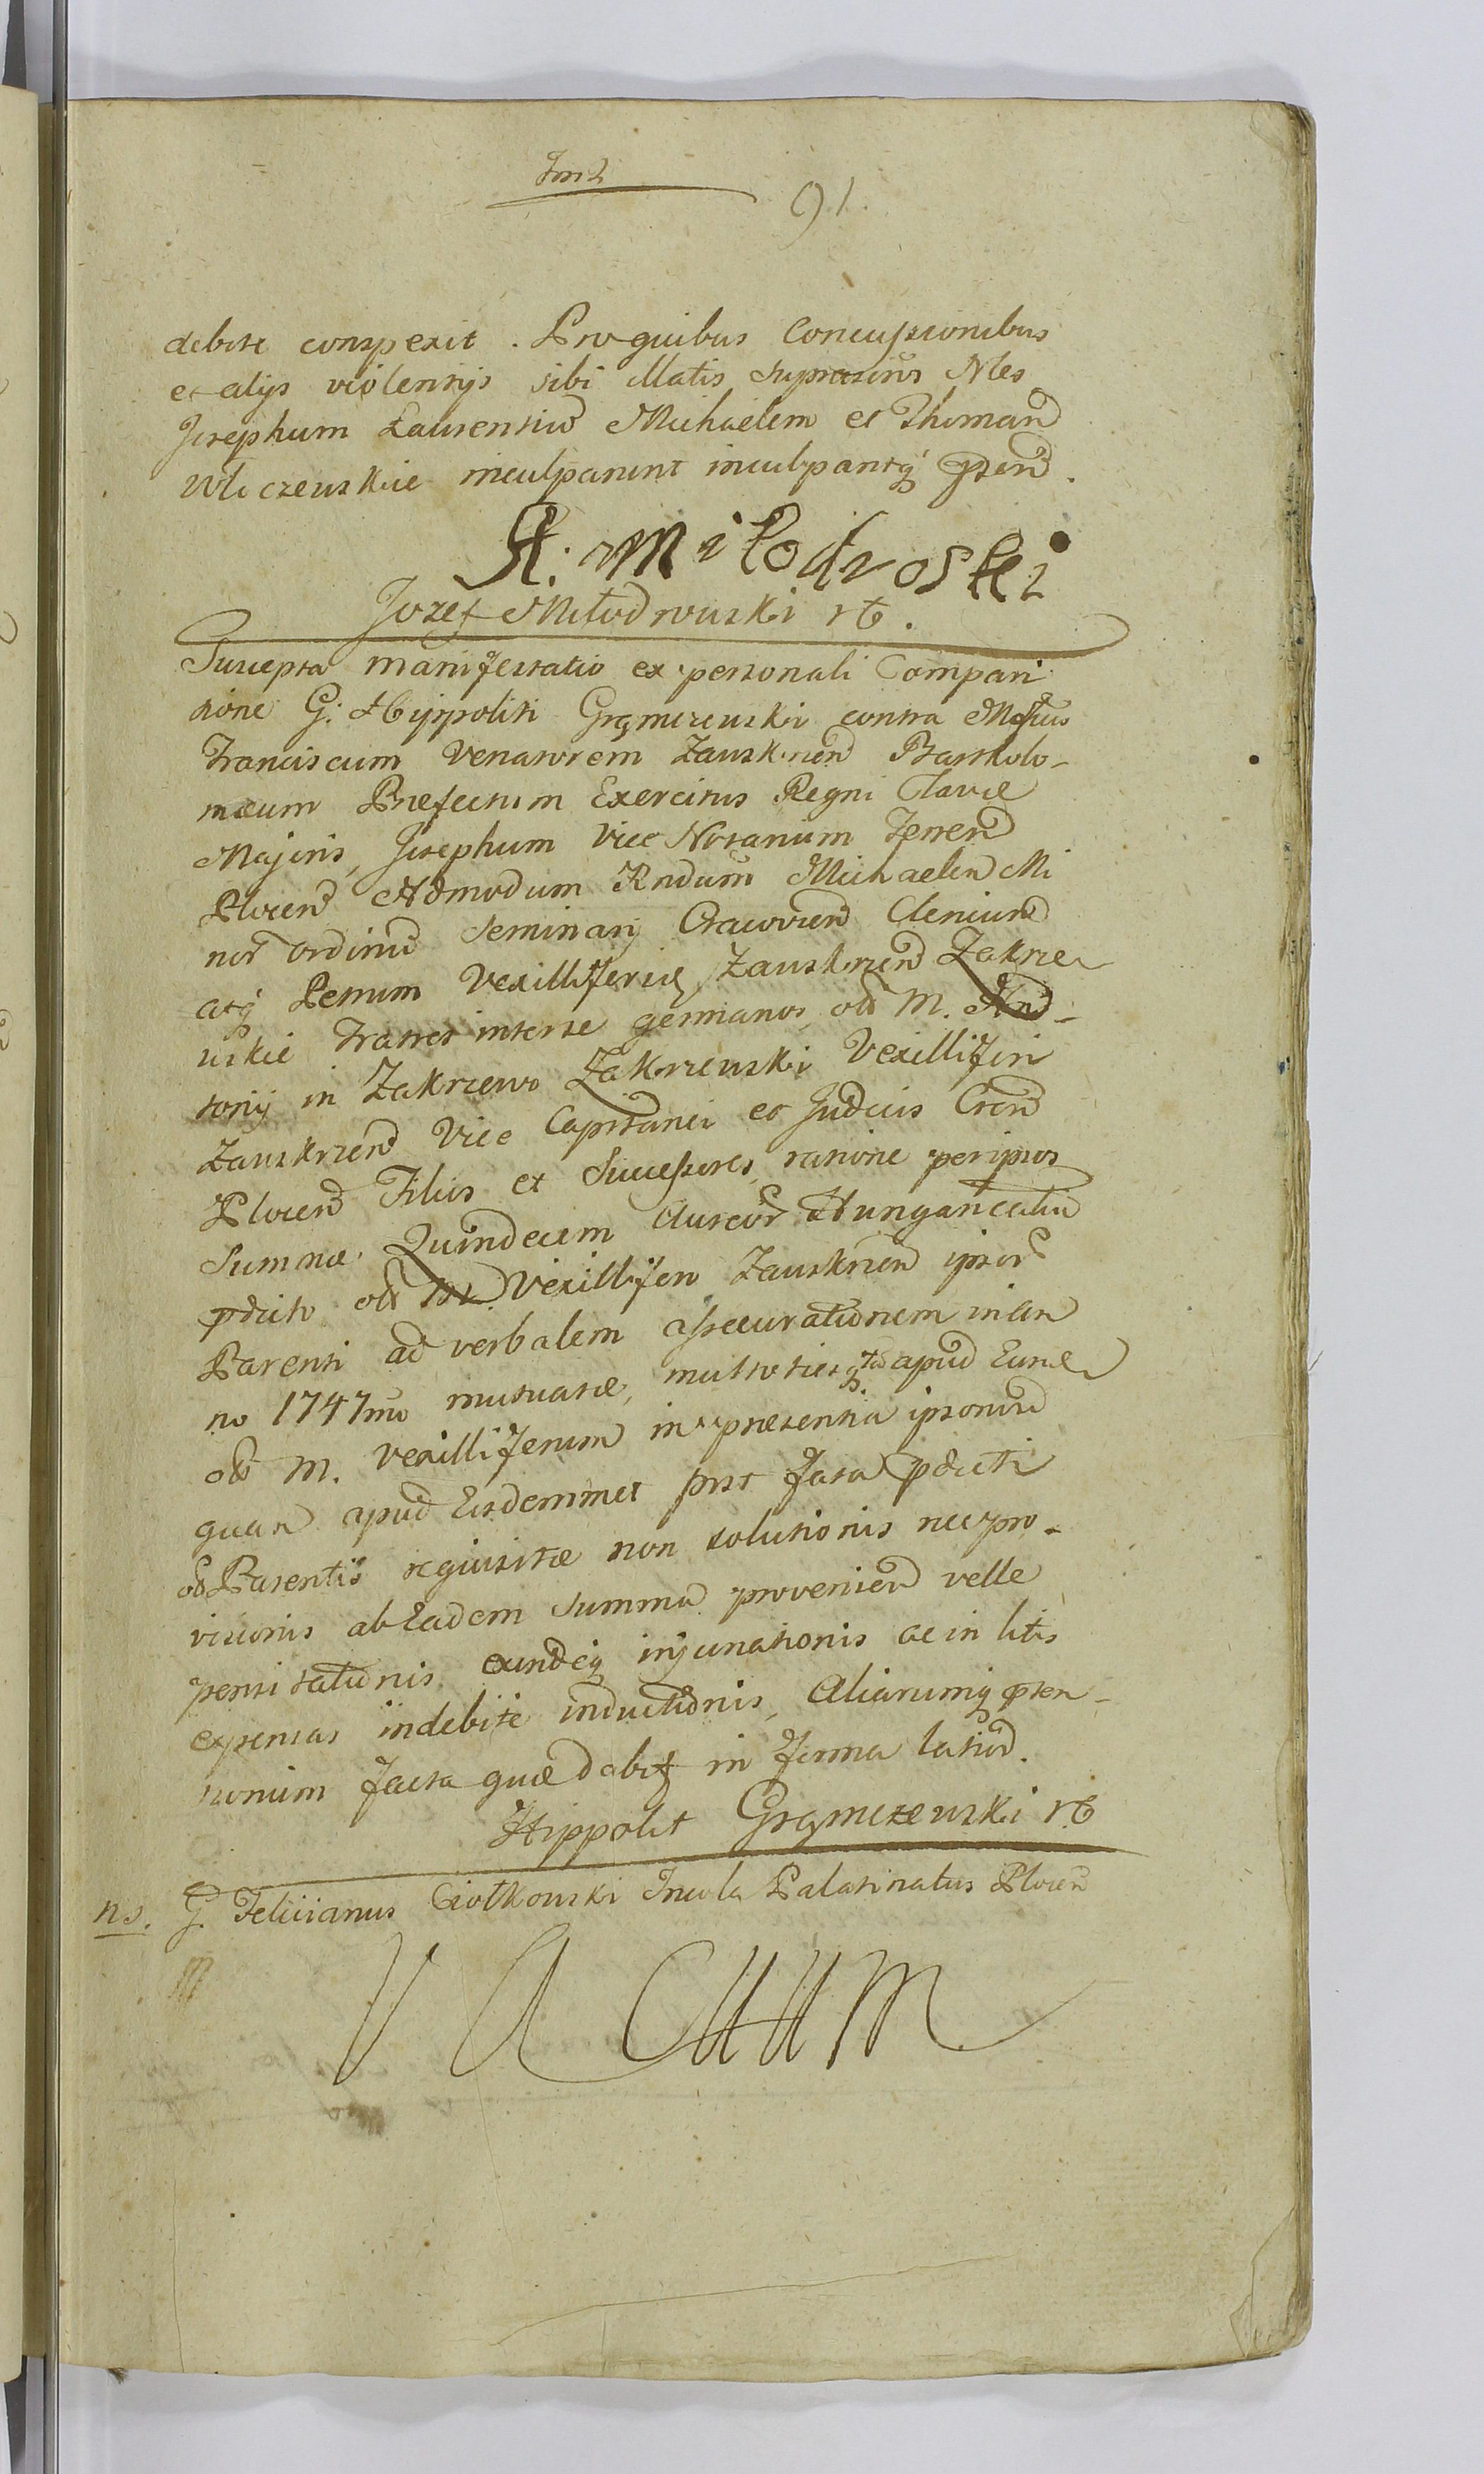 91.
debite conspexit. Pro quibus Concussionibus
et alys violentys sibi illatis supra Nles
Josephum Laurentiu Michaelem et Thomam
Wliczewskie inculparunt inculpantq pnd.
A. Miłodroski
Jozef Miłodrowski
Suscepta manifestatio ex personali Compari
tione G: Hyppoliti Grąmczewski contra Mgfcus
Franciscum Venatorem Zauskrzen Bartholo-
mæum Præfectum Exercitus Regni Clavæ
Majoris, Josephum Vice Notarium Terren
Plocen Admodum Rndum Michaelem Mi
nor ordinu Seminarij Cracovien Clericum
atq Petrum Vexilliferidę Zauskrzen Zakrze
wskie Fratres inter se germanos, olim M. An
tonij in Zakrzewo Zakrzewski Vexilliferi
Zauskrzen Vice Capitanei et Judicis Cren
Plocen Filios et Successores, ratione per ipsos
Summæ Quindecim Aureor Hungaricaliu
pdicto olim M. Vexillifero Zauskrzen ipsor
Parenti ad verbalem assecurationem in An
no 1747mo mutuatæ, multoties apud Eunde
olim M. Vexilliferum in præsentia ipsorum
quam apud Eosdemmet post fata pdicti
olim Parentis requisitæ non solutionis nec pro-
visionis ab Eadem summa provenien velle
pensitationis, eundeq injuriationis ac in litis
expensas indebite inductionis, Aliarumq prten-
sionum facta quæ dabit in forma latiori.
Hippolit Grąmczewski
ns. G. Felicianus Ciołkowski Incola Palatinatus Plocen
VACUUM